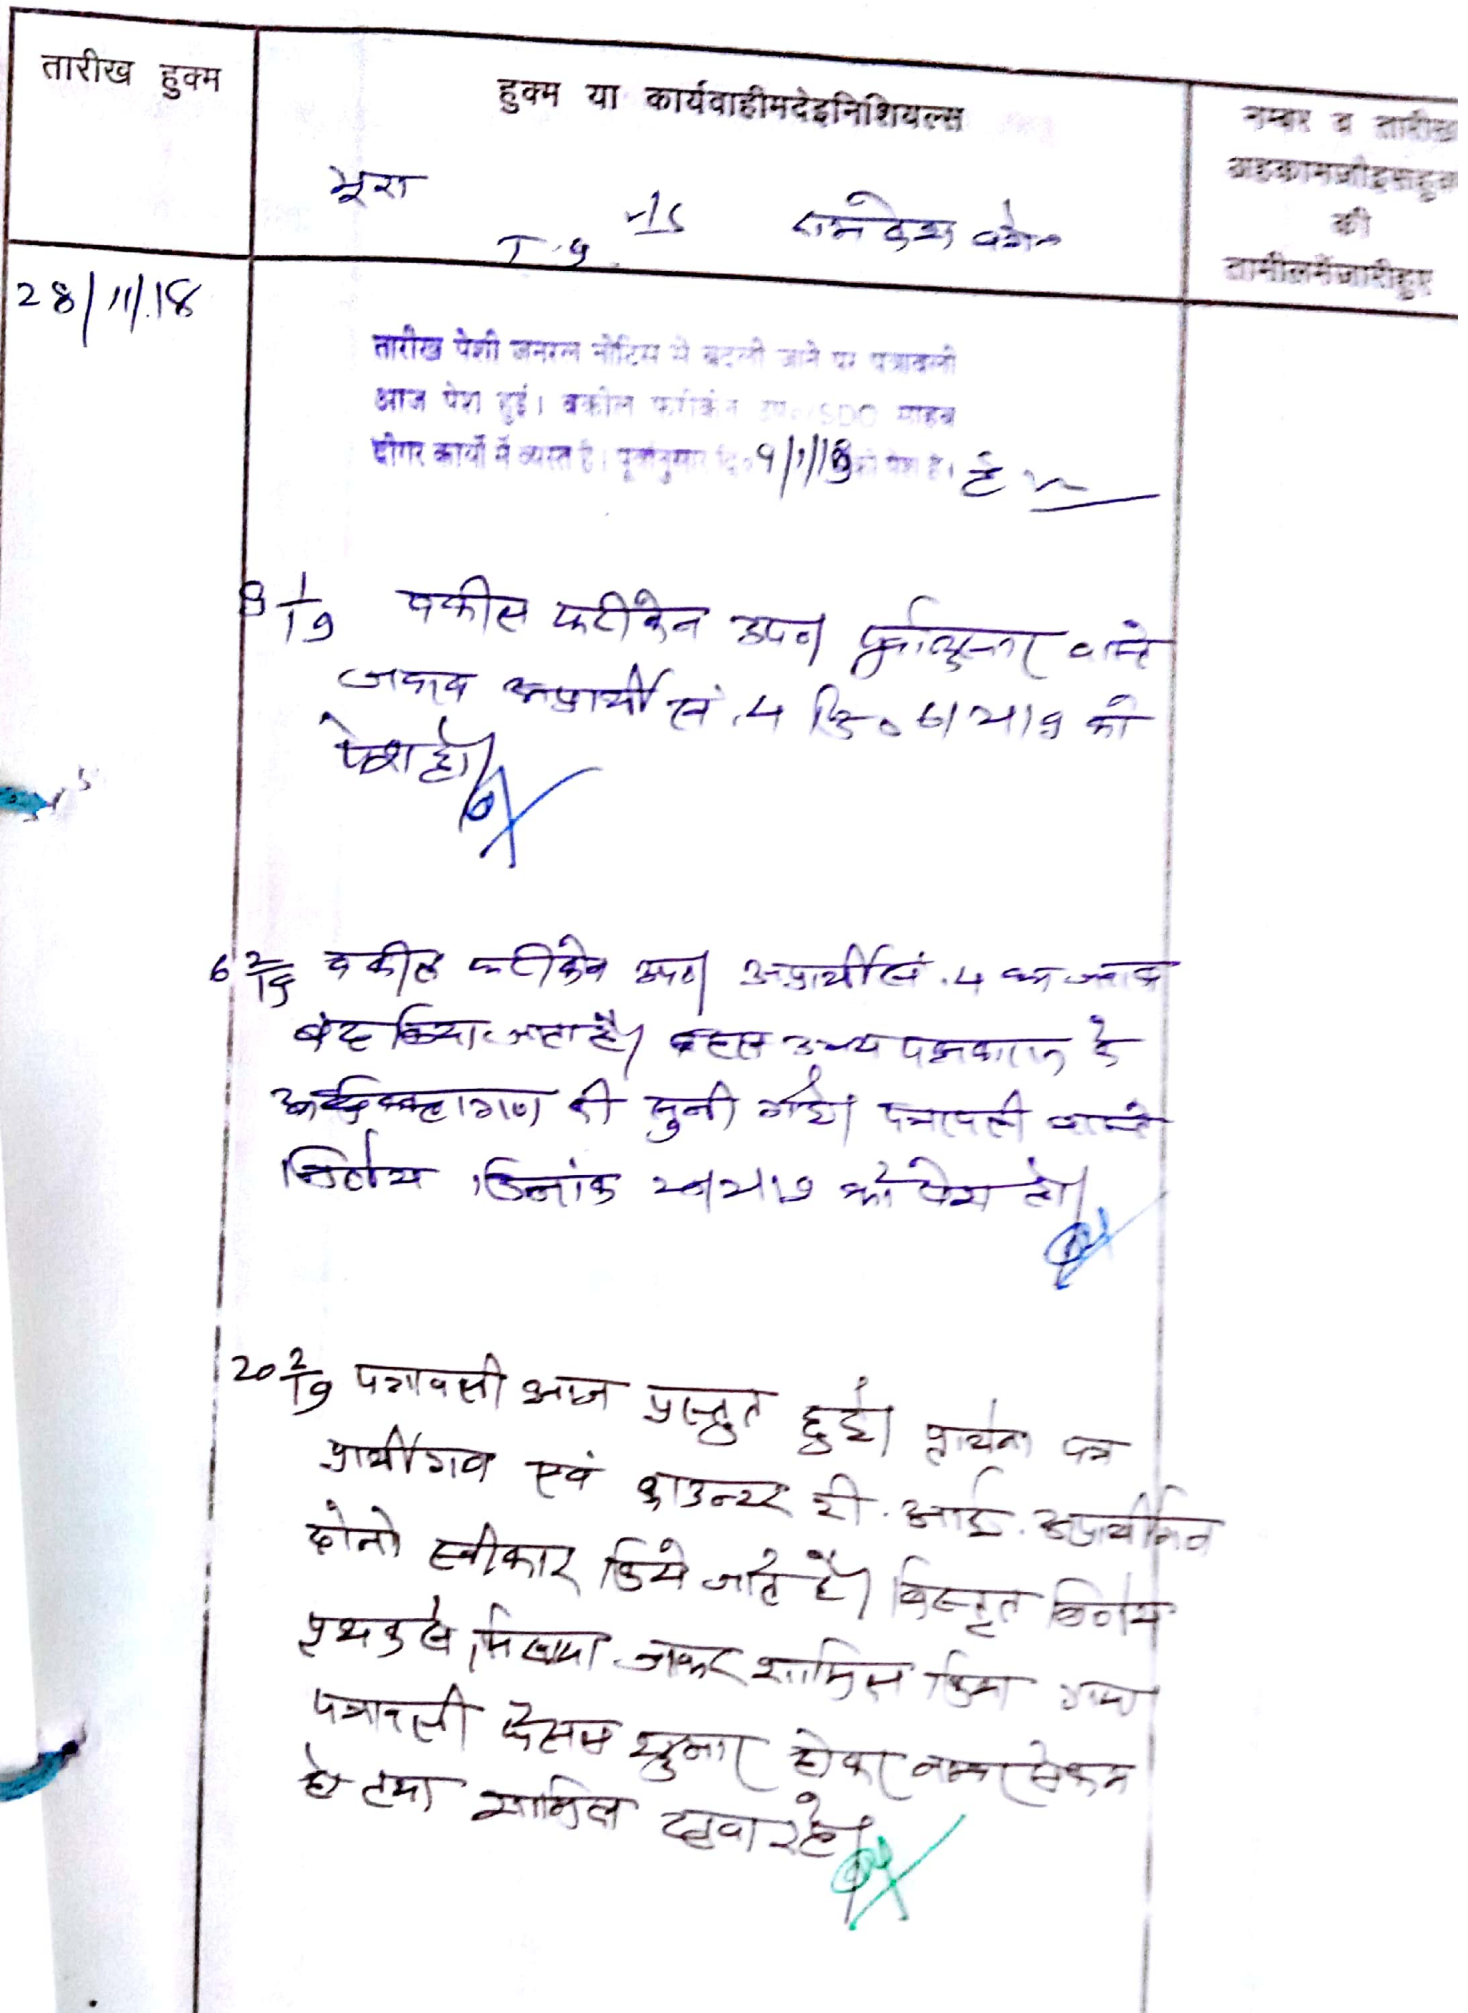 तारीख हुक्म
हुक्म या कार्यवाहीमदेइनिशियल्स
नम्बर व तारीख
अहकामजोइसहुक्म
की
तामीलमेंजारीहुए
भूरा
T.I. v/s रामकेश वगै०
28/11/18
तारीख पेशी जनरल नोटिस से बदली जाने पर पत्रावली
आज पेश हुई। वकील फरीकेन उप० SDO साहब
दीगर कार्यों में व्यस्त है। पूर्वानुसार दि० 9/1/19 को पेश है।
9 1/19 वकील फरीकेन उप०। पूर्वानुसार वास्ते
जवाब अप्रार्थी सं. 4 दि० 6/2/19 को
पेश हो।
6 2/19 वकील फरीकेन उप०। अप्रार्थी सं. 4 का जवाब
बंद किया जाता है। बहस उभय पक्षकारान के
अधिवक्तागण की सुनी गई। पत्रावली वास्ते
निर्णय दिनांक 20/2/19 को पेश हो।
20 2/19 पत्रावली आज प्रस्तुत हुई। प्रार्थना पत्र
प्रार्थीगण एवं काउन्टर टी. आई. अप्रार्थीगण
दोनो स्वीकार किये जाते है। विस्तृत निर्णय
पृथक से लिखाया जाकर शामिल किया गया
पत्रावली फैसल शुमार होकर नम्बर से कम
हो तथा शामिल दावा रहे।